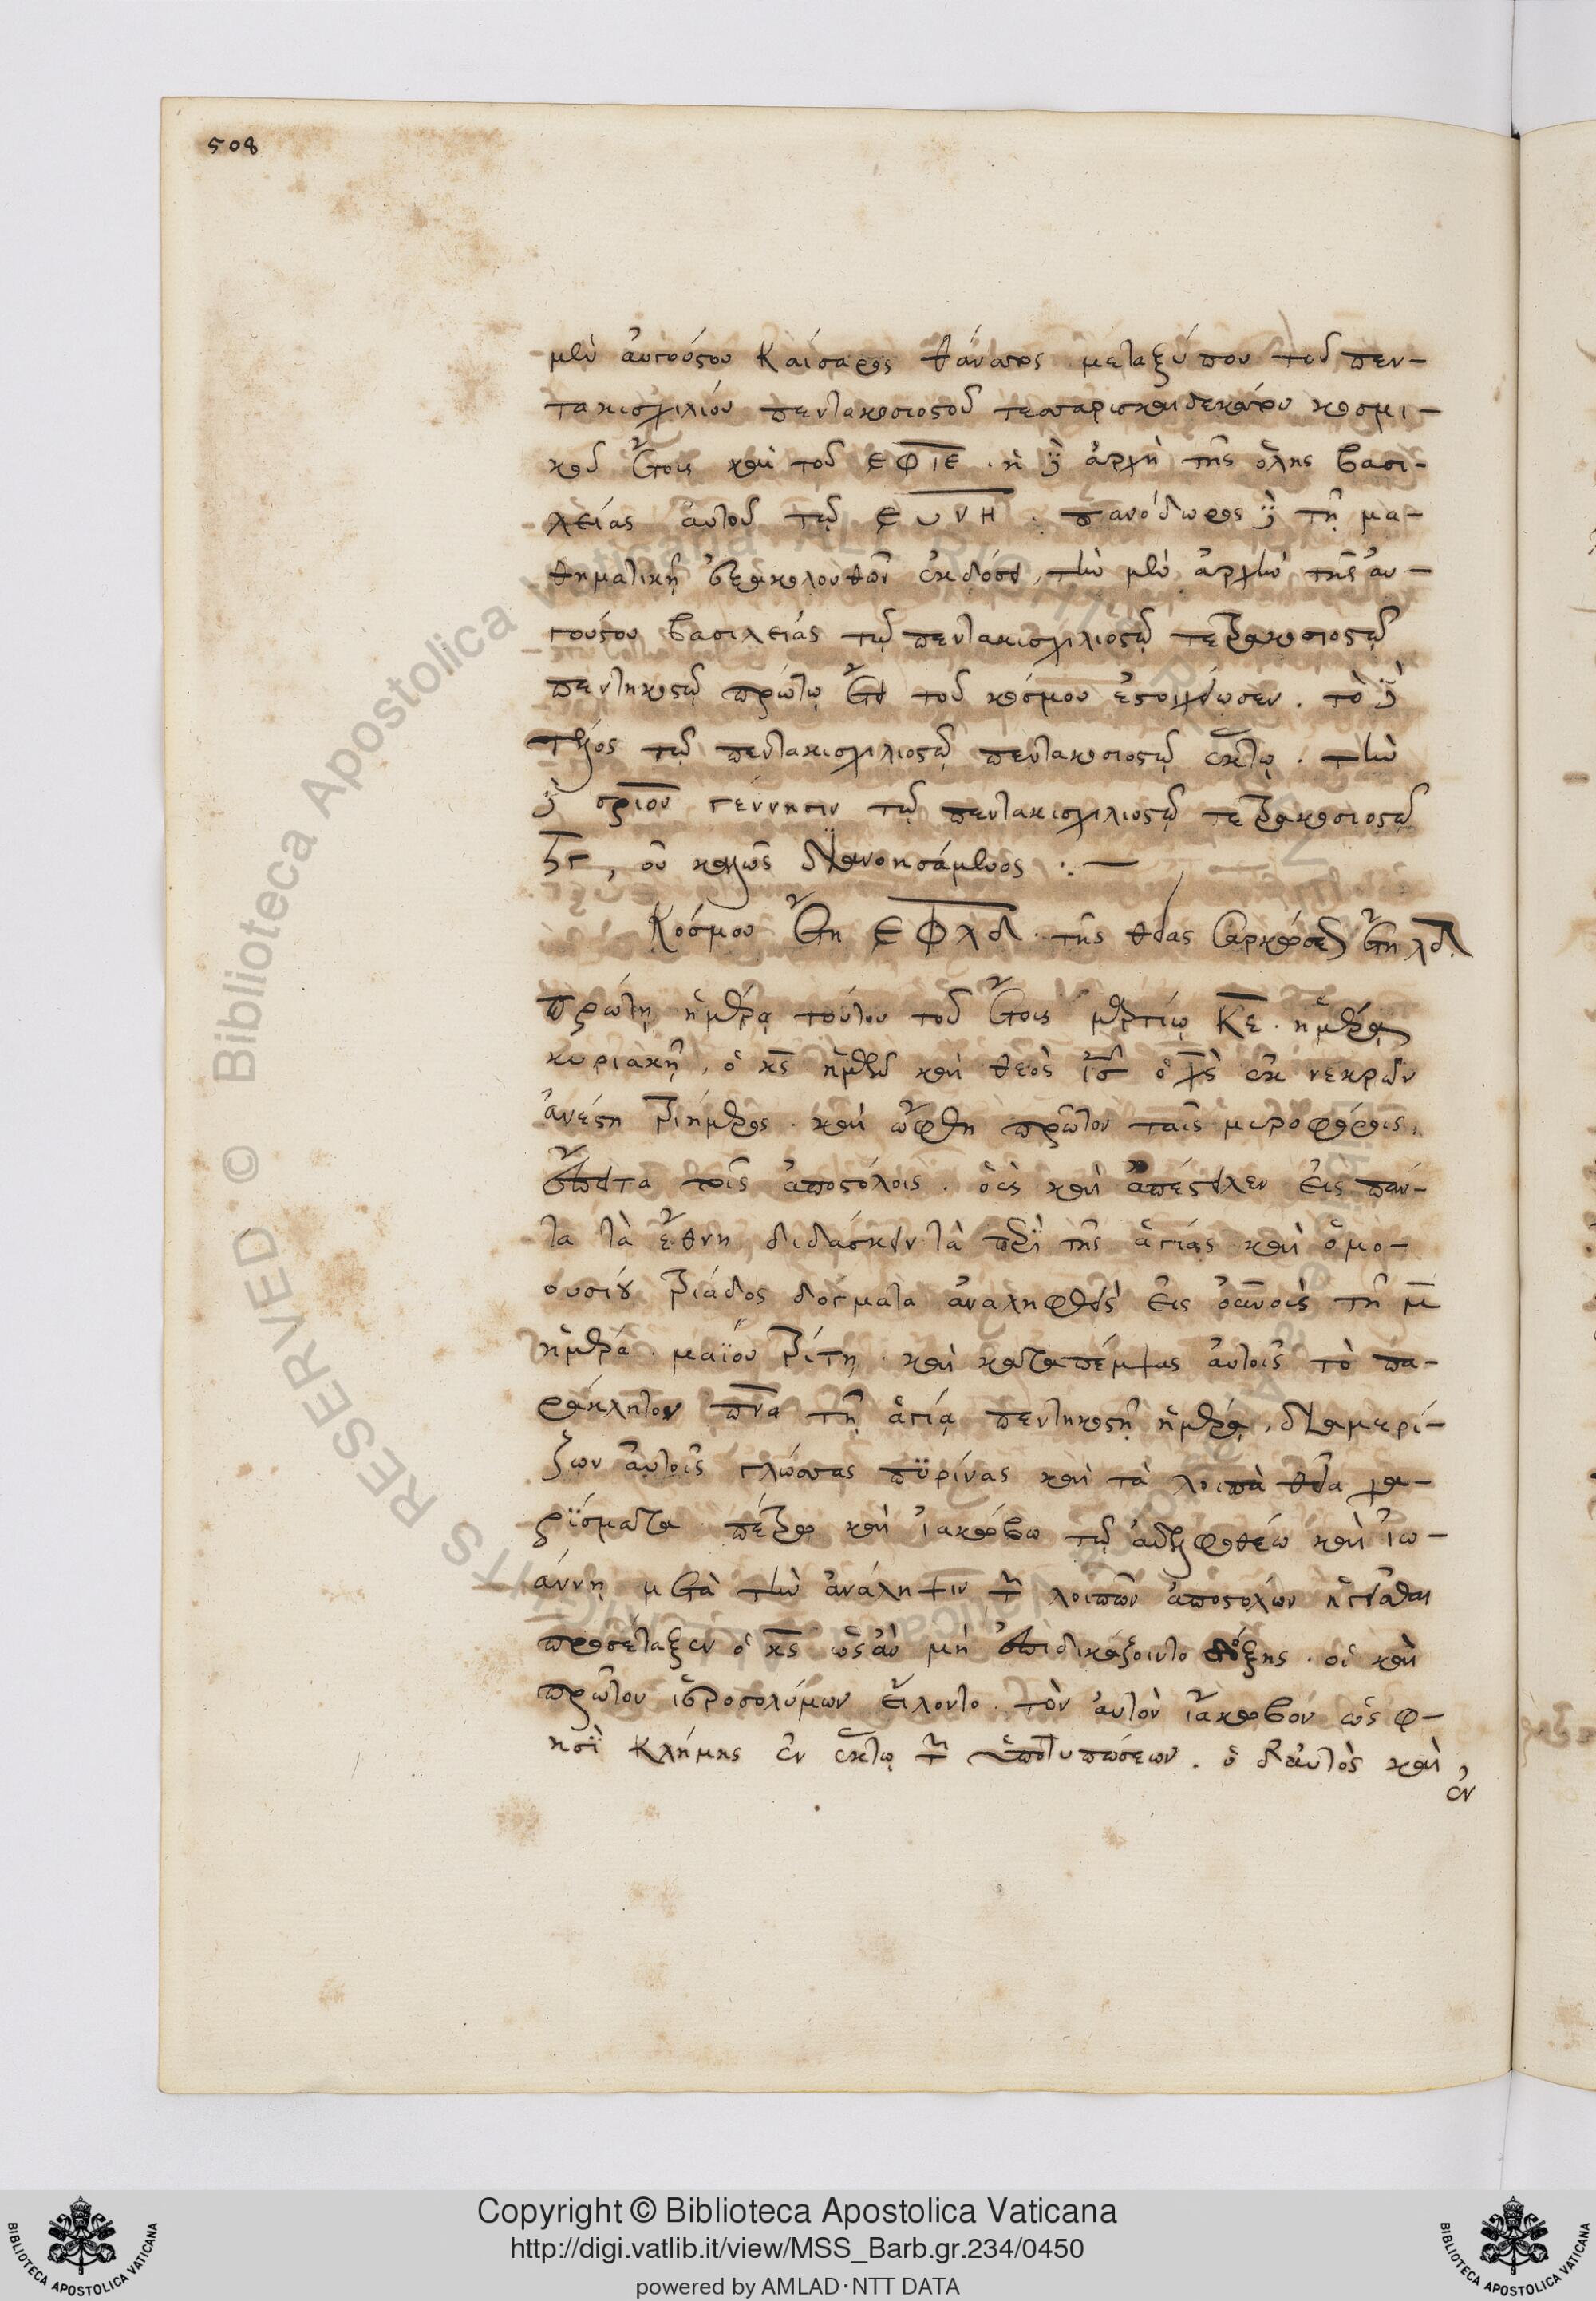 508
μὲν αὐγούστου καίσαρος θάνατος μεταξύ που τοῦ πεν-
τακισχιλίου πεντακοσιοστοῦ τεσσαρισκαιδεκάτου κοσμι-
κοῦ ἔτους καὶ τοῦ εφιε. ἡ δὲ ἀρχὴ τῆς ὅλης βασι-
λείας αὐτοῦ τῷ ευνη. πανόδωρος δὲ τῇ μα-
θηματικῇ ἐξακολουθῶν ἐκδόσει, τὴν μὲν ἀρχὴν τῆς αὐ-
γούστου βασιλείας τῷ πεντακισχιλιοστῷ τετρακοσιοστῷ
πεντηκοστῷ πρώτῳ ἔτει τοῦ κόσμου ἐστοιχείωσεν. τὸ δὲ
τέλος τῷ πεντακισχιλιοστῷ πεντακοσιοστῷ ἕκτῳ. τὴν
δὲ σριου γέννησιν τῷ πεντακισχιλιοστῷ τετρακοσιοστῷ
ϟγ, οὐ καλῶς διανοησάμενος :. —
Κόσμου ἔτη εφλδ. τῆς θείας σαρκώσεως ἔτη λδ.
πρώτῃ ἡμέρᾳ τούτου τοῦ ἔτους μαρτίῳ κε. ἡμέρᾳ
κυριακῇ, ὁ κς ἡμῶν καὶ θεὸς ις ὁ χς ἐκ νεκρῶν
ἀνέστη τριήμερος. καὶ ὤφθη πρῶτον ταῖς μυροφόροις.
ἔπειτα τοῖς ἀποστόλοις. οὓς καὶ ἀπέστειλεν εἰς πάν-
τα τὰ ἔθνη διδάσκειν τὰ περὶ τῆς ἁγίας καὶ ὁμο-
ουσίου τριάδος δόγματα ἀναληφθεὶς εἰς οὐνοὺς τῇ μ
ἡμέρᾳ. μαΐου τρίτῃ. καὶ καταπέμψας αὐτοῖς τὸ πα-
ράκλητον πνα τῇ ἁγίᾳ πεντηκοστῇ ἡμέρᾳ, διαμερί-
ζων αὐτοῖς γλώσσας πυρίνας καὶ τὰ λοιπὰ θεῖα χα-
ρίσματα. πέτρῳ καὶ ἰακώβῳ τῷ ἀδελφοθέῳ καὶ ἰω-
άννῃ μετὰ τὴν ἀνάληψιν τῶν λοιπῶν ἀποστόλων ἡγεῖσθαι
προσέταξεν ὁ κς ὡς ἂν μὴ ἐπιδικάζοιντο δόξης. οἳ καὶ
πρῶτον ἱεροσολύμων εἵλοντο. τὸν αὐτὸν ἰάκωβον ὥς φ-
ησι κλήμης ἐν ἕκτῳ τῶν ὑποτυπώσεων. ὁ δ' αὐτὸς καὶ
ἐν
Copyright © Biblioteca Apostolica Vaticana
http://digi.vatlib.it/view/MSS_Barb.gr.234/0450
powered by AMLAD·NTT DATA
BIBLIOTECA APOSTOLICA VATICANA
BIBLIOTECA APOSTOLICA VATICANA